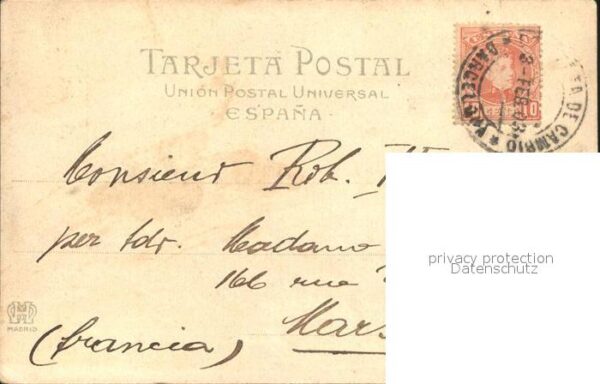 TARJETA POSTAL
UNIÓN POSTAL UNIVERSAL
ESPAÑA
10
DE CAMBIO * BARCEL
3-FEB 03
Monsieur Rob.
per Madame
166 rue
Mars
(Francia)
MADRID
privacy protection
Datenschutz